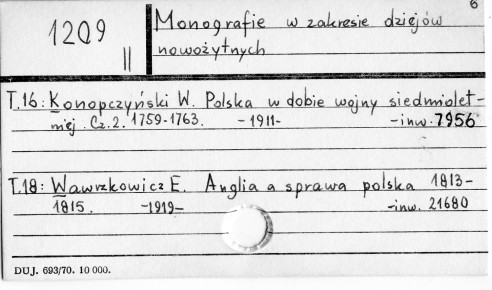 6
1209
II
Monografie w zakresie dziejów
nowożytnych
T.16: Konopczyński W. Polska w dobie wojny siedmiolet-
niej. Cz.2. 1759-1763. -1911- -inw. 7956
T.18: Wawrzkowicz E. Anglia a sprawa polska 1813-
1815. -1919- -inw. 21680
DUJ. 693/70. 10 000.